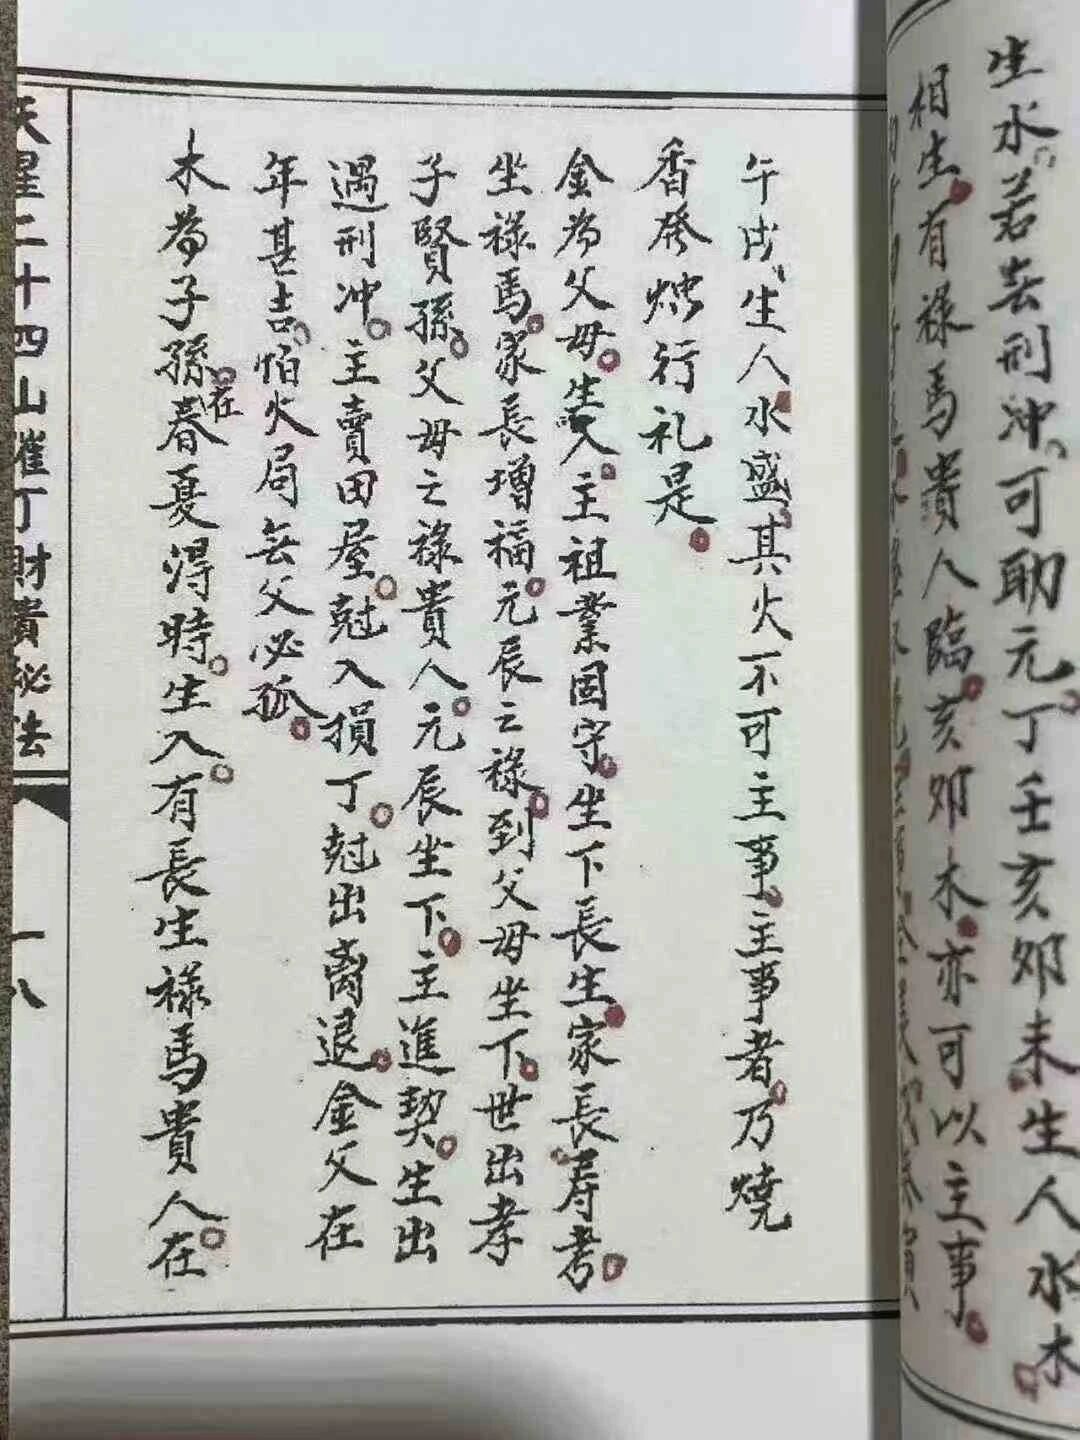 生水、若无刑冲、可助元。丁壬亥卯未生人水木
相生。有禄馬貴人臨。亥卯木。亦可以主事。
午戌、生人。水盛。其火不可主事。主事者。乃燒
香发烛行礼是。
金為父母。生入。主祖業固守。坐下長生。家長寿考。
坐禄馬。家長增福。元辰之禄。到父母坐下。世出孝
子賢孫。父母之禄貴人。元辰坐下。主進契。生出
遇刑冲。主賣田屋。尅入損丁。尅出离退。金父在
年甚吉。怕火局无父必孤。
木為子孫。在春夏淂時。生入。有長生禄馬貴人。在
天星二十四山催丁財貴秘法
一八